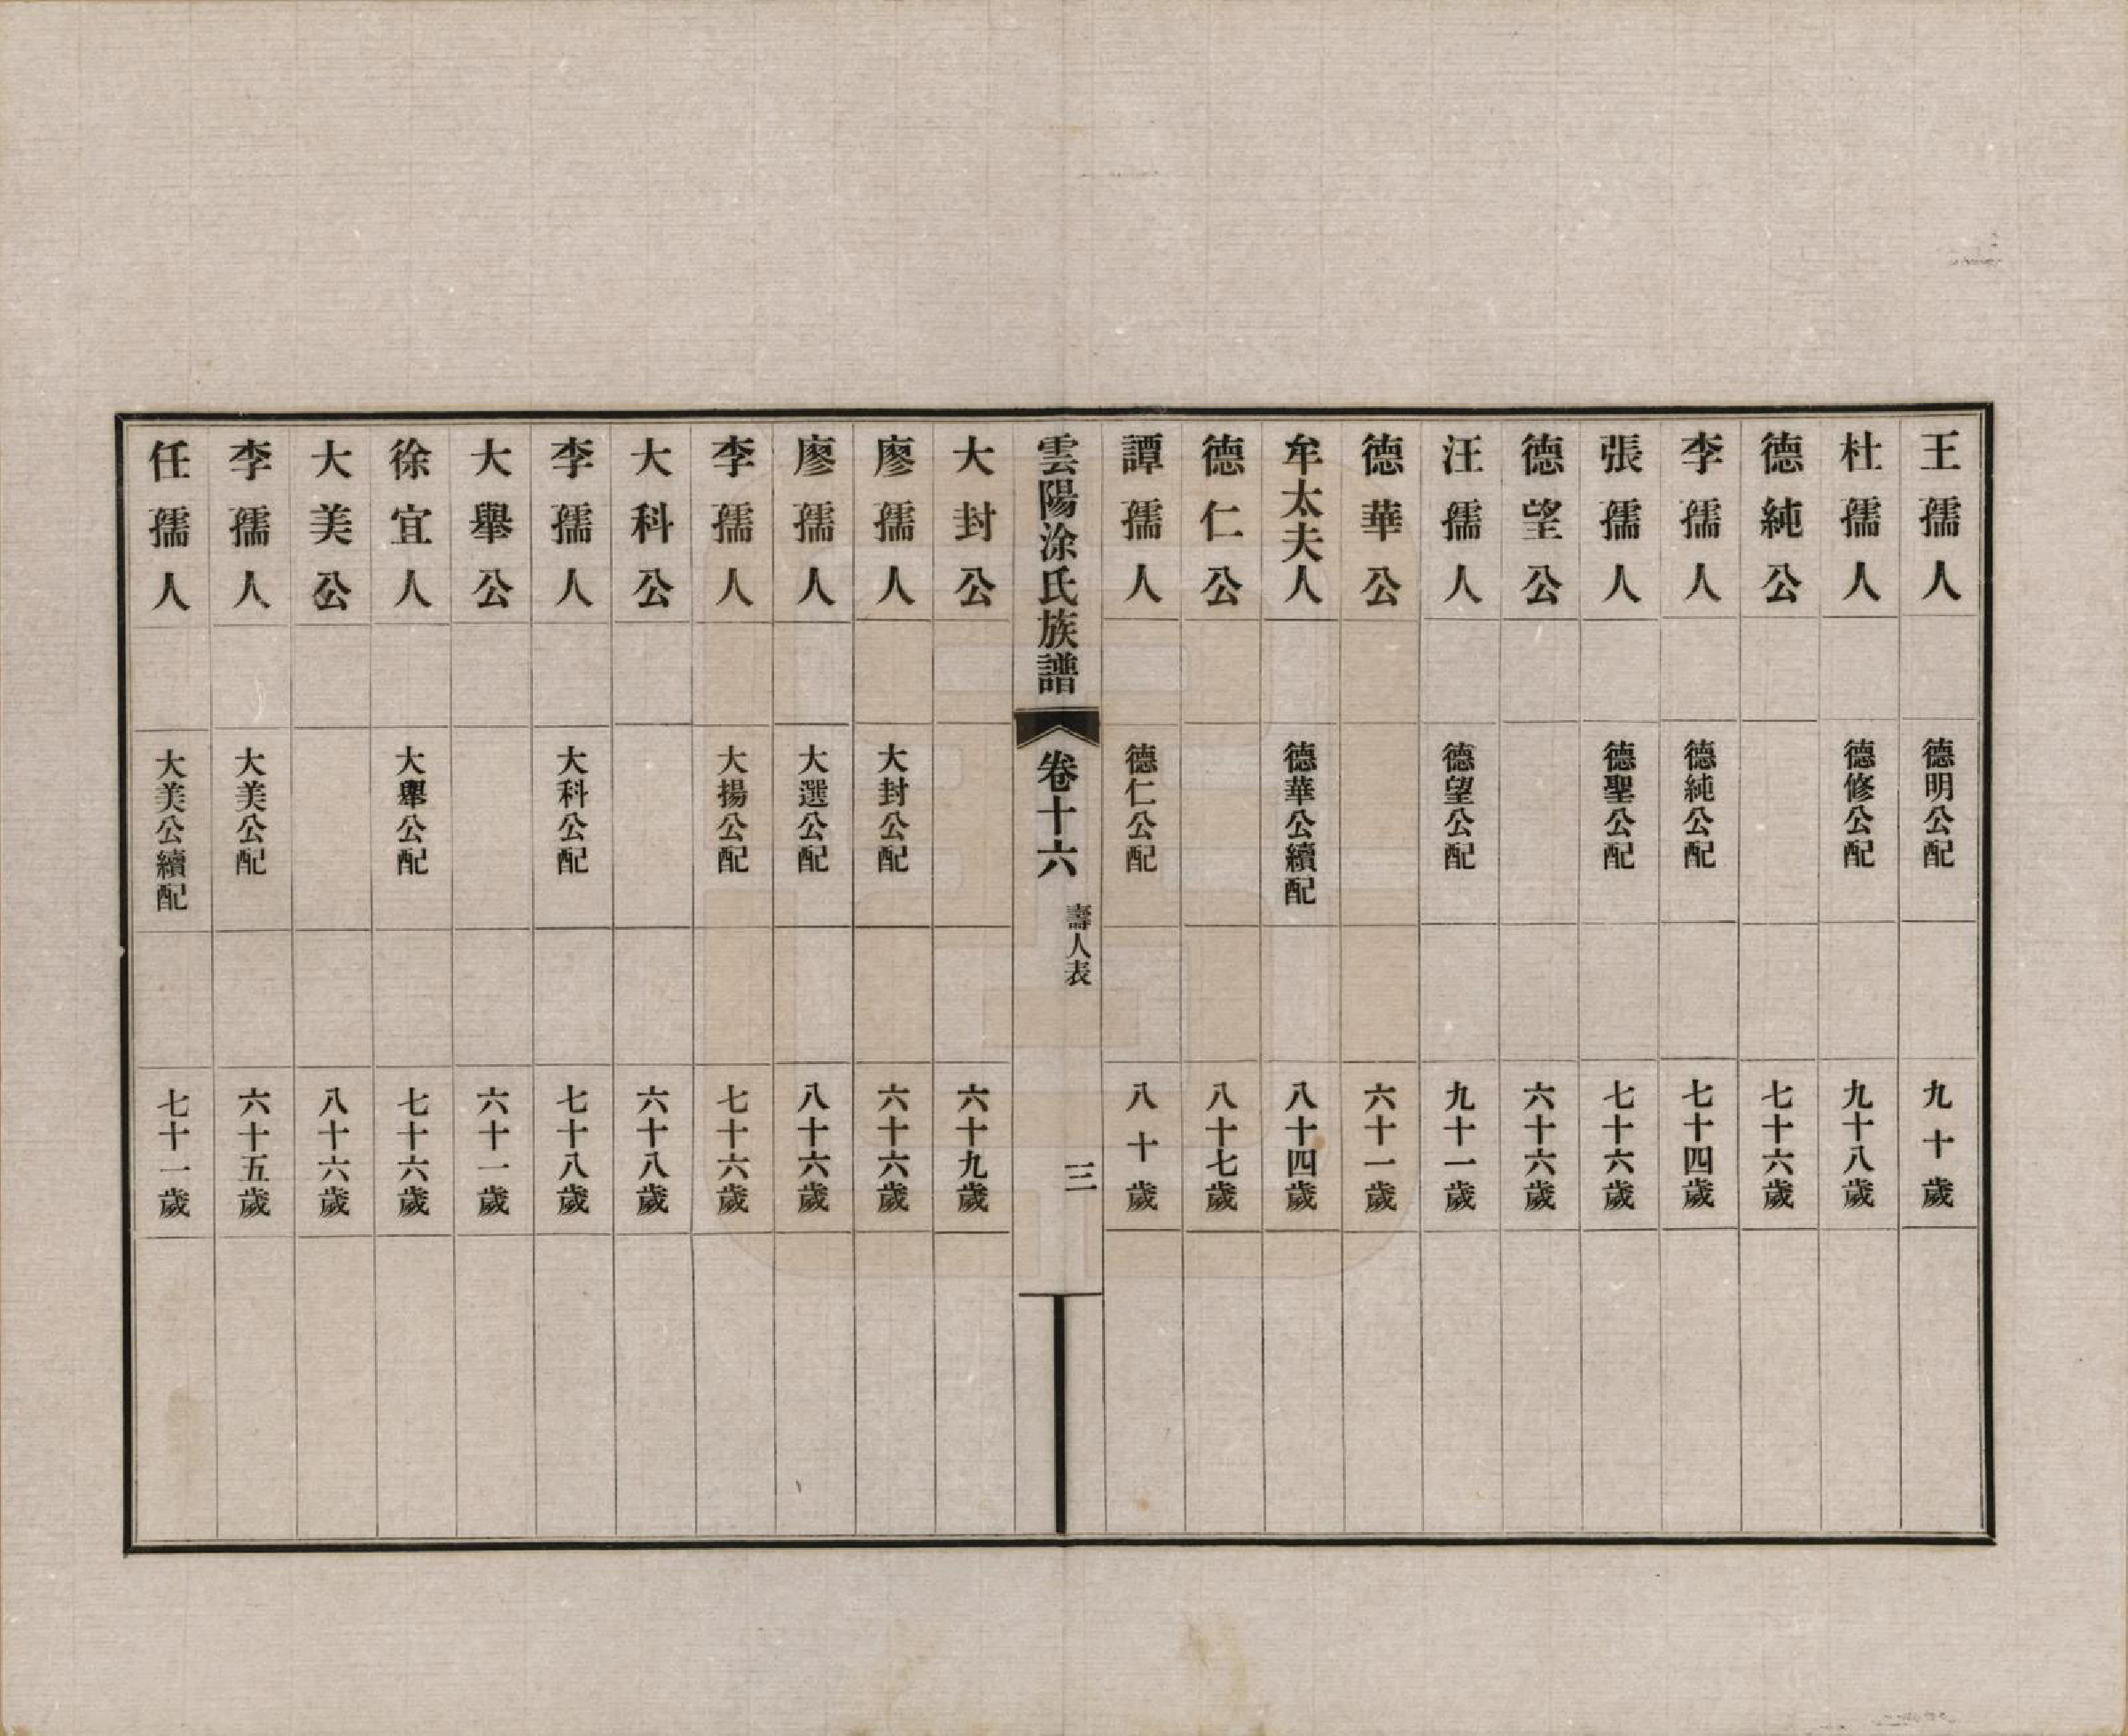 王孺人 德明公配 九十歲
杜孺人 德修公配 九十八歲
德純公 七十六歲
李孺人 德純公配 七十四歲
張孺人 德聖公配 七十六歲
德望公 六十六歲
汪孺人 德望公配 九十一歲
德華公 六十一歲
牟太夫人 德華公續配 八十四歲
德仁公 八十七歲
譚孺人 德仁公配 八十歲
雲陽涂氏族譜 卷十六 壽人表 三
大封公 六十九歲
廖孺人 大封公配 六十六歲
廖孺人 大選公配 八十六歲
李孺人 大揚公配 七十六歲
大科公 六十八歲
李孺人 大科公配 七十八歲
大舉公 六十一歲
徐宜人 大舉公配 七十六歲
大美公 八十六歲
李孺人 大美公配 六十五歲
任孺人 大美公續配 七十一歲